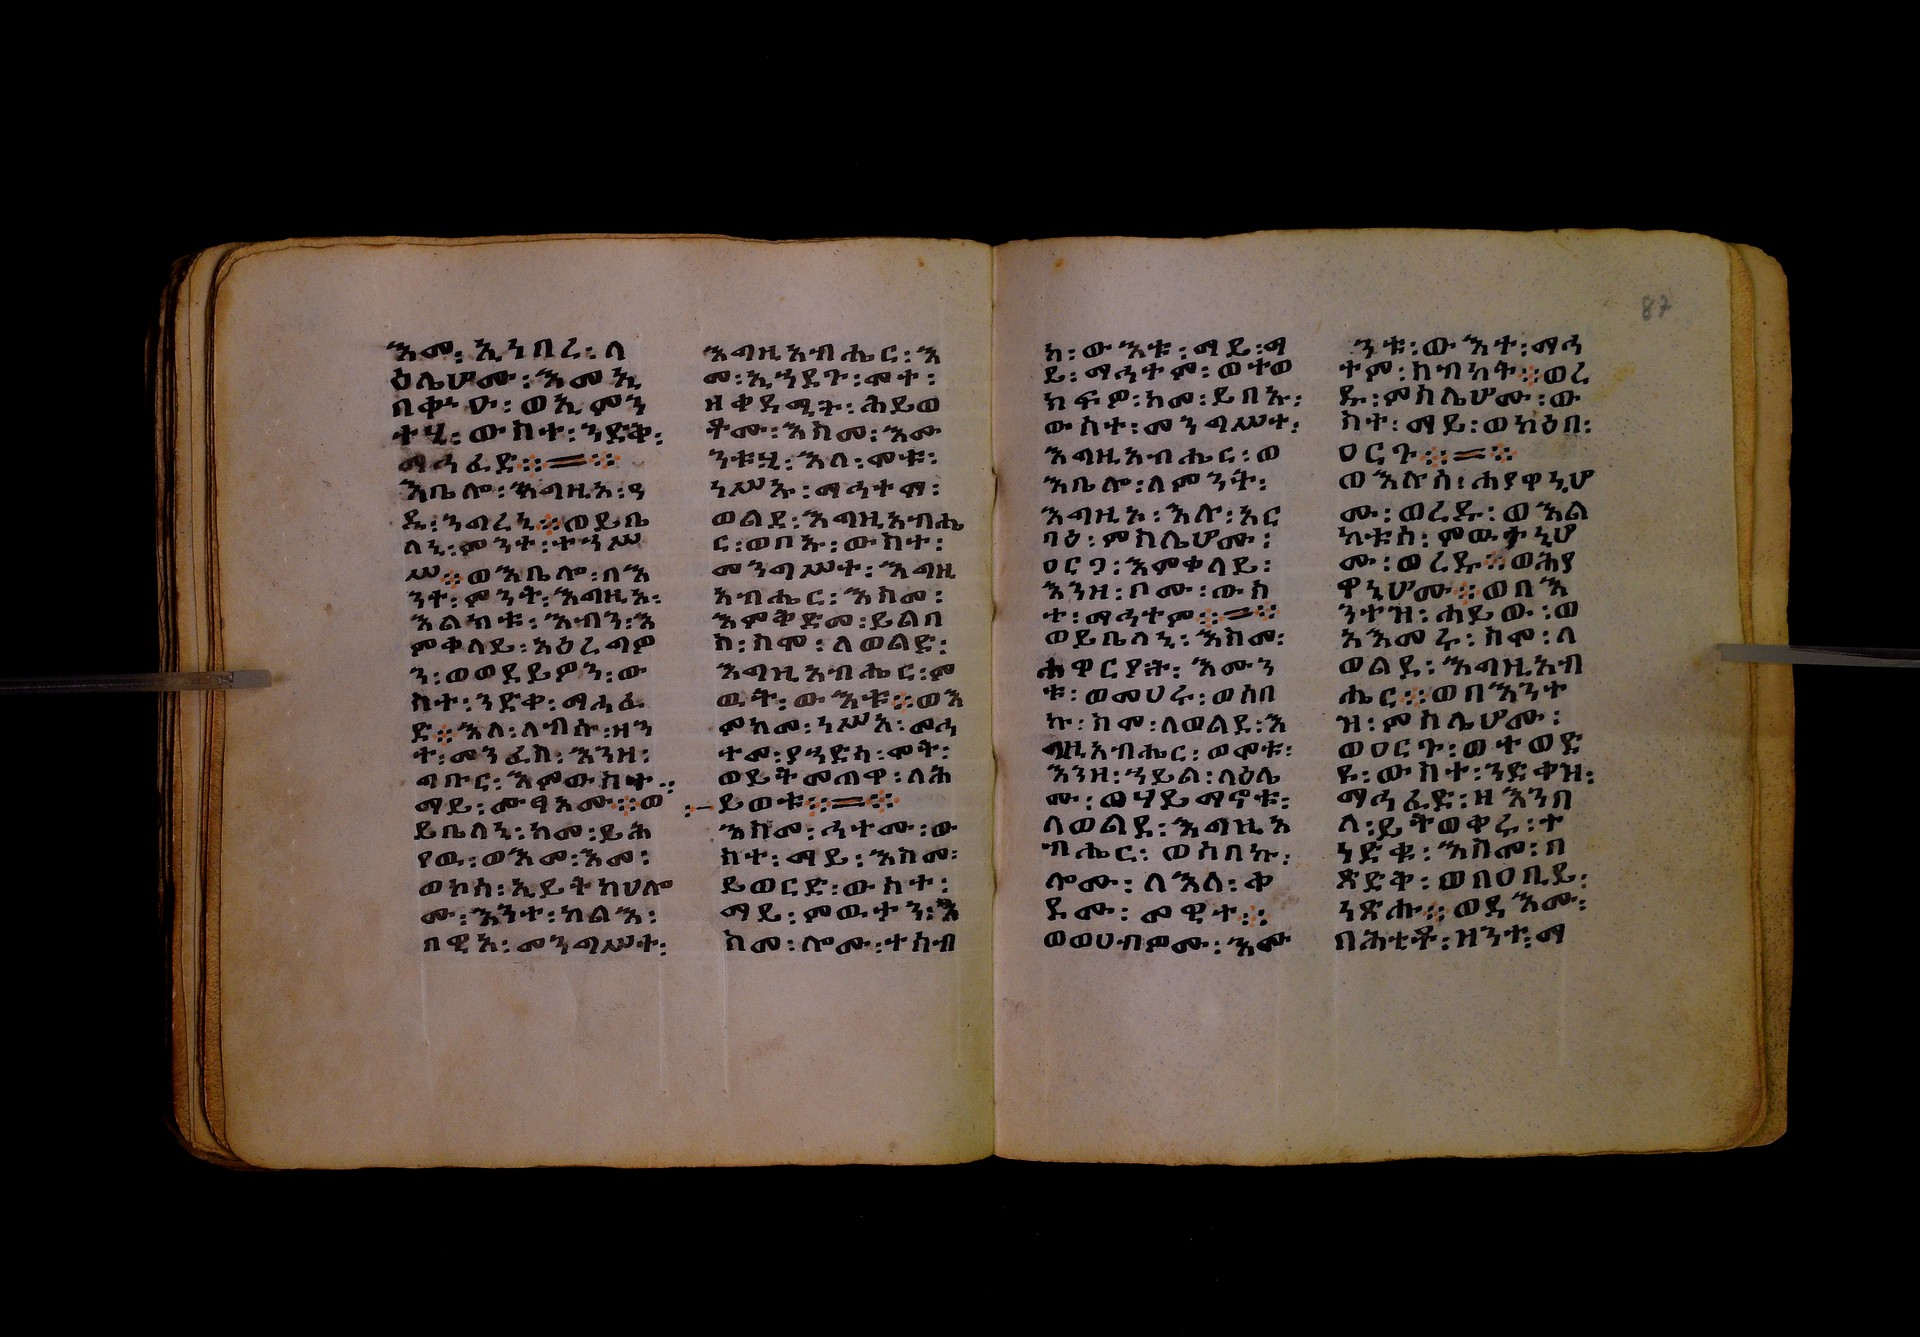 እመ፡ ኢነበረ፡ ላ
ዕሌሆሙ፡ እመ ኢ
በቍዑ፡ ወኢምን
ተሂ፡ ውስተ፡ ንድቅ፡
ማኅፈድ።=።
እቤሎ፡ እግዚኦ፡ ዓ
ዲ፡ ንግረኒ።ወይቤ
ለኒ፡ ምንተ፡ ተኀሥ
ሥ።ወእቤሎ፡ በእ
ንተ፡ ምንት፡ እግዚኦ፡
እልክቱ፡ እብን፡ እ
ምቀላይ፡ አዕረግዎ
ን፡ ወወደይዎን፡ ው
ስተ፡ ንድቀ፡ ማኅፈ
ድ።እለ፡ ለብሱ፡ ዘን
ተ፡ መንፈስ፡ እንዘ፡
ግቡር፡ እምውስተ፡
ማይ፡ ሙፃአሙ።ወ
ይቤለኒ፡ ከመ፡ ይሕ
የዉ፡ ወእመ፡ እመ፡
ወኮስ፡ ኢይትከሀሎ
ሙ፡ እንተ፡ ካልእ፡
በዊአ፡ መንግሥተ፡
እግዚአብሔር፡ እ
መ፡ ኢኀደጉ፡ ሞተ፡
ዘቀዳሚት፡ ሕይወ
ቶሙ፡ እስመ፡ እሙ
ንቱሂ፡ እለ፡ ሞቱ፡
ነሥኡ፡ ማኅተማ፡
ወልደ፡ እግዚአብሔ
ር፡ ወቦኡ፡ ውስተ፡
መንግሥተ፡ እግዚ
አብሔር፡ እስመ፡
እምቅድመ፡ ይልበ
ስ፡ ስሞ፡ ለወልድ፡
እግዚአብሔር፡ ም
ዉት፡ ውእቱ።ወእ
ምከመ፡ ነሥአ፡ መኅ
ተመ፡ ያኀድስ፡ ሞት፡
ወይትመጠዋ፡ ለሕ
ይወቱ።=።
እስመ፡ ኅተሙ፡ ው
ስተ፡ ማይ፡ እስመ፡
ይወርድ፡ ውስተ፡
ማይ፡ ምዉተን፡ እ
ስመ፡ ሎሙ፡ ተሰብ
ከ፡ ውእቱ፡ ማይ፡ ማ
ይ፡ ማኅተም፡ ወተወ
ክፍዎ፡ ከመ፡ ይበኡ፡
ውስተ፡ መንግሥተ፡
እግዚአብሔር፡ ወ
እቤሎ፡ ለምንት፡
እግዚኦ፡ እሉ፡ አር
ባዕ፡ ምስሌሆሙ፡
ዐርጉ፡ እምቀላይ፡
እንዘ፡ ቦሙ፡ ውስ
ተ፡ ማኅተም።=።
ወይቤለኒ፡ እስመ፡
ሐዋርያት፡ እሙን
ቱ፡ ወመሀሩ፡ ወሰበ
ኩ፡ ስሞ፡ ለወልደ፡ እ
ግዚአብሔር፡ ወሞቱ፡
እንዘ፡ ኀይል፡ ላዕሌ
ሙ፡ ወሃይማኖቱ፡
ለወልደ፡ እግዚአ
ብሔር፡ ወሰበኩ፡
ሎሙ፡ ለእለ፡ ቀ
ደሙ፡ መዊተ።
ወወሀብዎሙ፡ እሙ
ንቱ፡ ውእተ፡ ማኅ
ተም፡ ስብከት።ወረ
ዱ፡ ምስሌሆሙ፡ ው
ስተ፡ ማይ፡ ወካዕበ፡
ዐርጉ።=።
ወእሉሰ፡ ሐያዋኒሆ
ሙ፡ ወረዱ፡ ወእል
ክቱሰ፡ ምውቲሆ
ሙ፡ ወረዱ።ወሕያ
ዋኒሆሙ።ወበእ
ንተዝ፡ ሐይው፡ ወ
አእመሩ፡ ስሞ፡ ለ
ወልደ፡ እግዚአብ
ሔር።ወበእንተ
ዝ፡ ምስሌሆሙ፡
ወዐርጉ፡ ወተወድ
ዩ፡ ውስተ፡ ንድቀዝ፡
ማኅፈድ፡ ዘእንበ
ለ፡ ይትወቀሩ፡ ተ
ነድቁ፡ እስመ፡ በ
ጽድቅ፡ ወበዐቢይ፡
ንጽሑ።ወዳእሙ፡
በሕቲቶ፡ ዝንተ፡ ማ
87